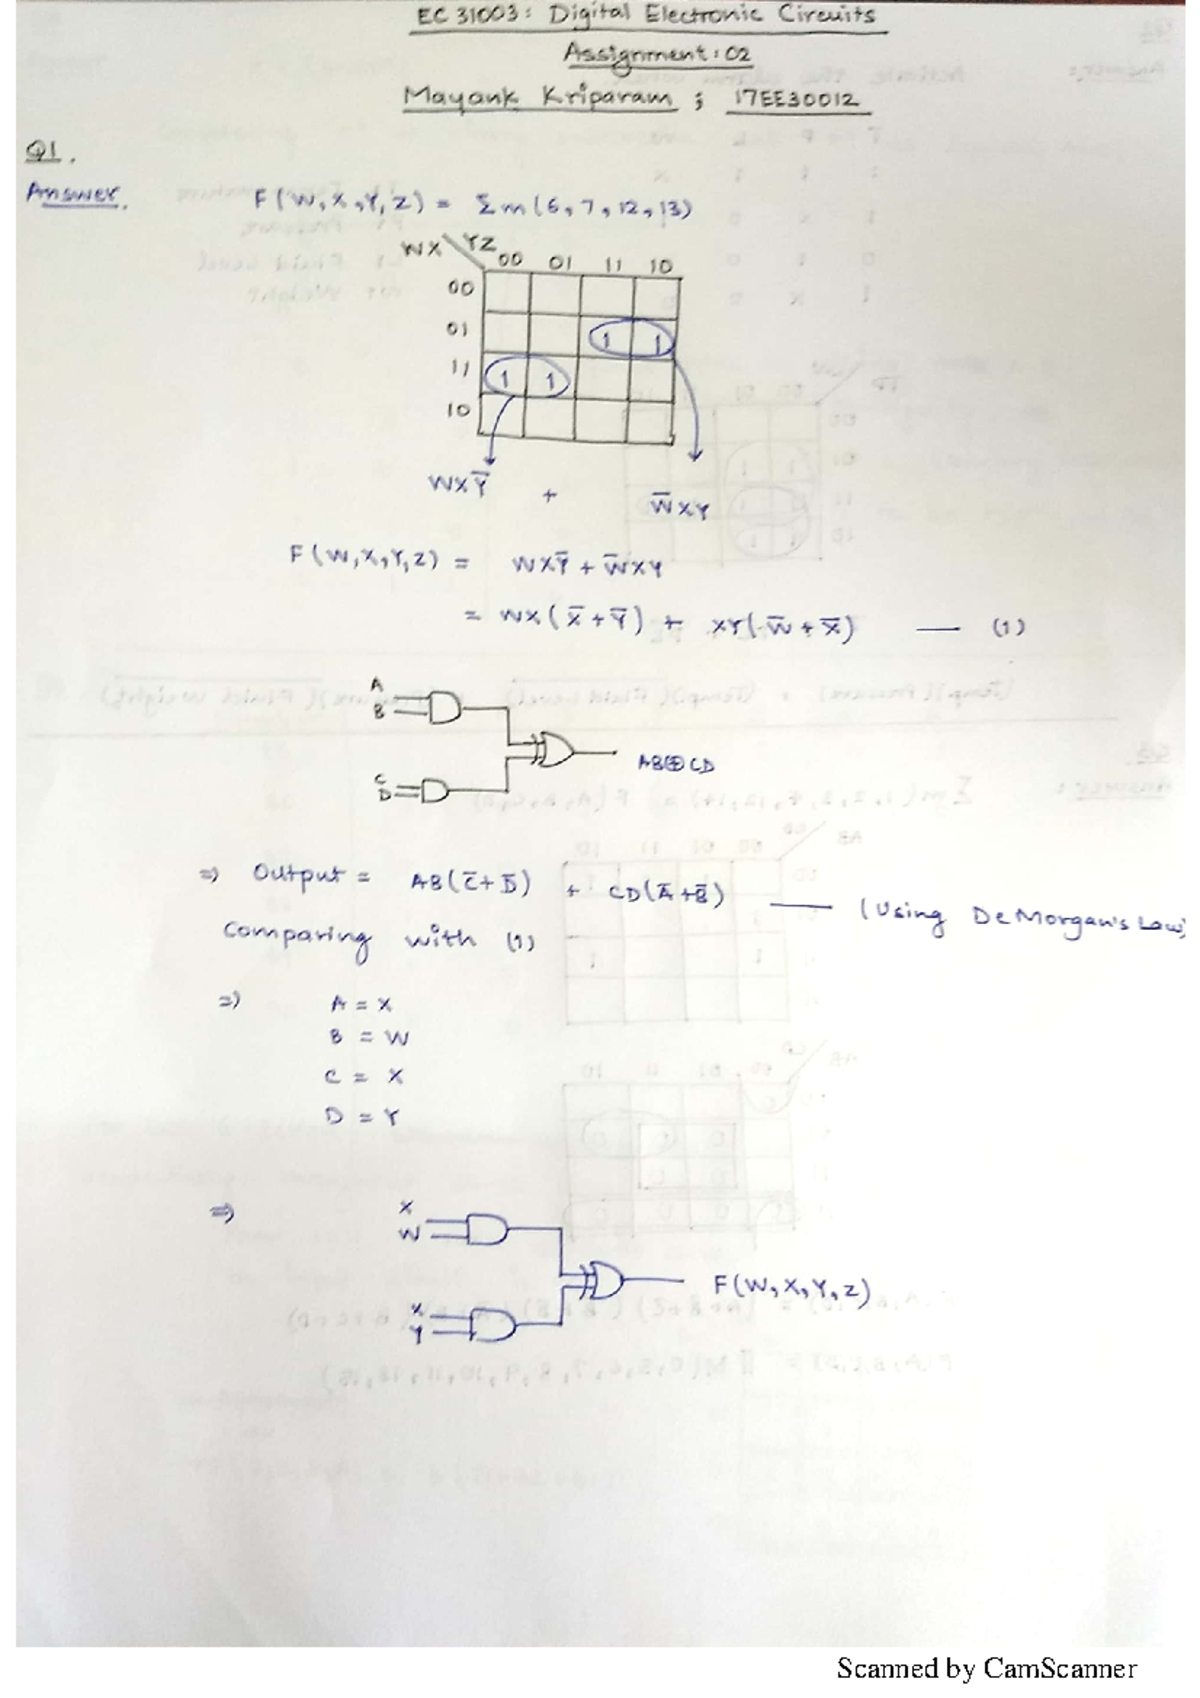 EC 31003: Digital Electronic Circuits
Assignment: 02
Mayank Kriparam ; 17EE30012
Q1.
Answer.
F(W,X,Y,Z) = Σm(6,7,12,13)
WX YZ
00 01 11 10
00
01 1 1
11 1 1
10
WXȲ + W̄XY
F(W,X,Y,Z) = WXȲ + W̄XY
= WX(X̄+Ȳ) + XY(W̄+X̄) — (1)
A
B
AB⊕CD
C
D
⇒ Output = AB(C̄+D̄) + CD(Ā+B̄) — (Using DeMorgan's Law)
Comparing with (1)
⇒ A = X
B = W
C = X
D = Y
⇒ X
W
F(W,X,Y,Z)
X
Y
Scanned by CamScanner